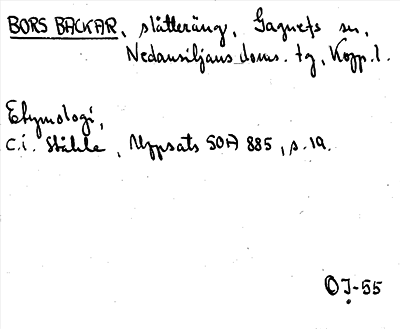 BORS BACKAR, slåtteräng, Gagnefs sn,
Nedansiljans doms. tg, Kopp. l.
Etymologi,
C.I. Ståhle, Uppsats SOA 885, s. 19.
OJ-55